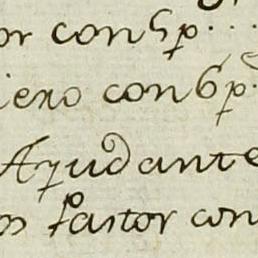 or con 5 p. . . .
iero con 6 p.
Ayudante
os Pastor con